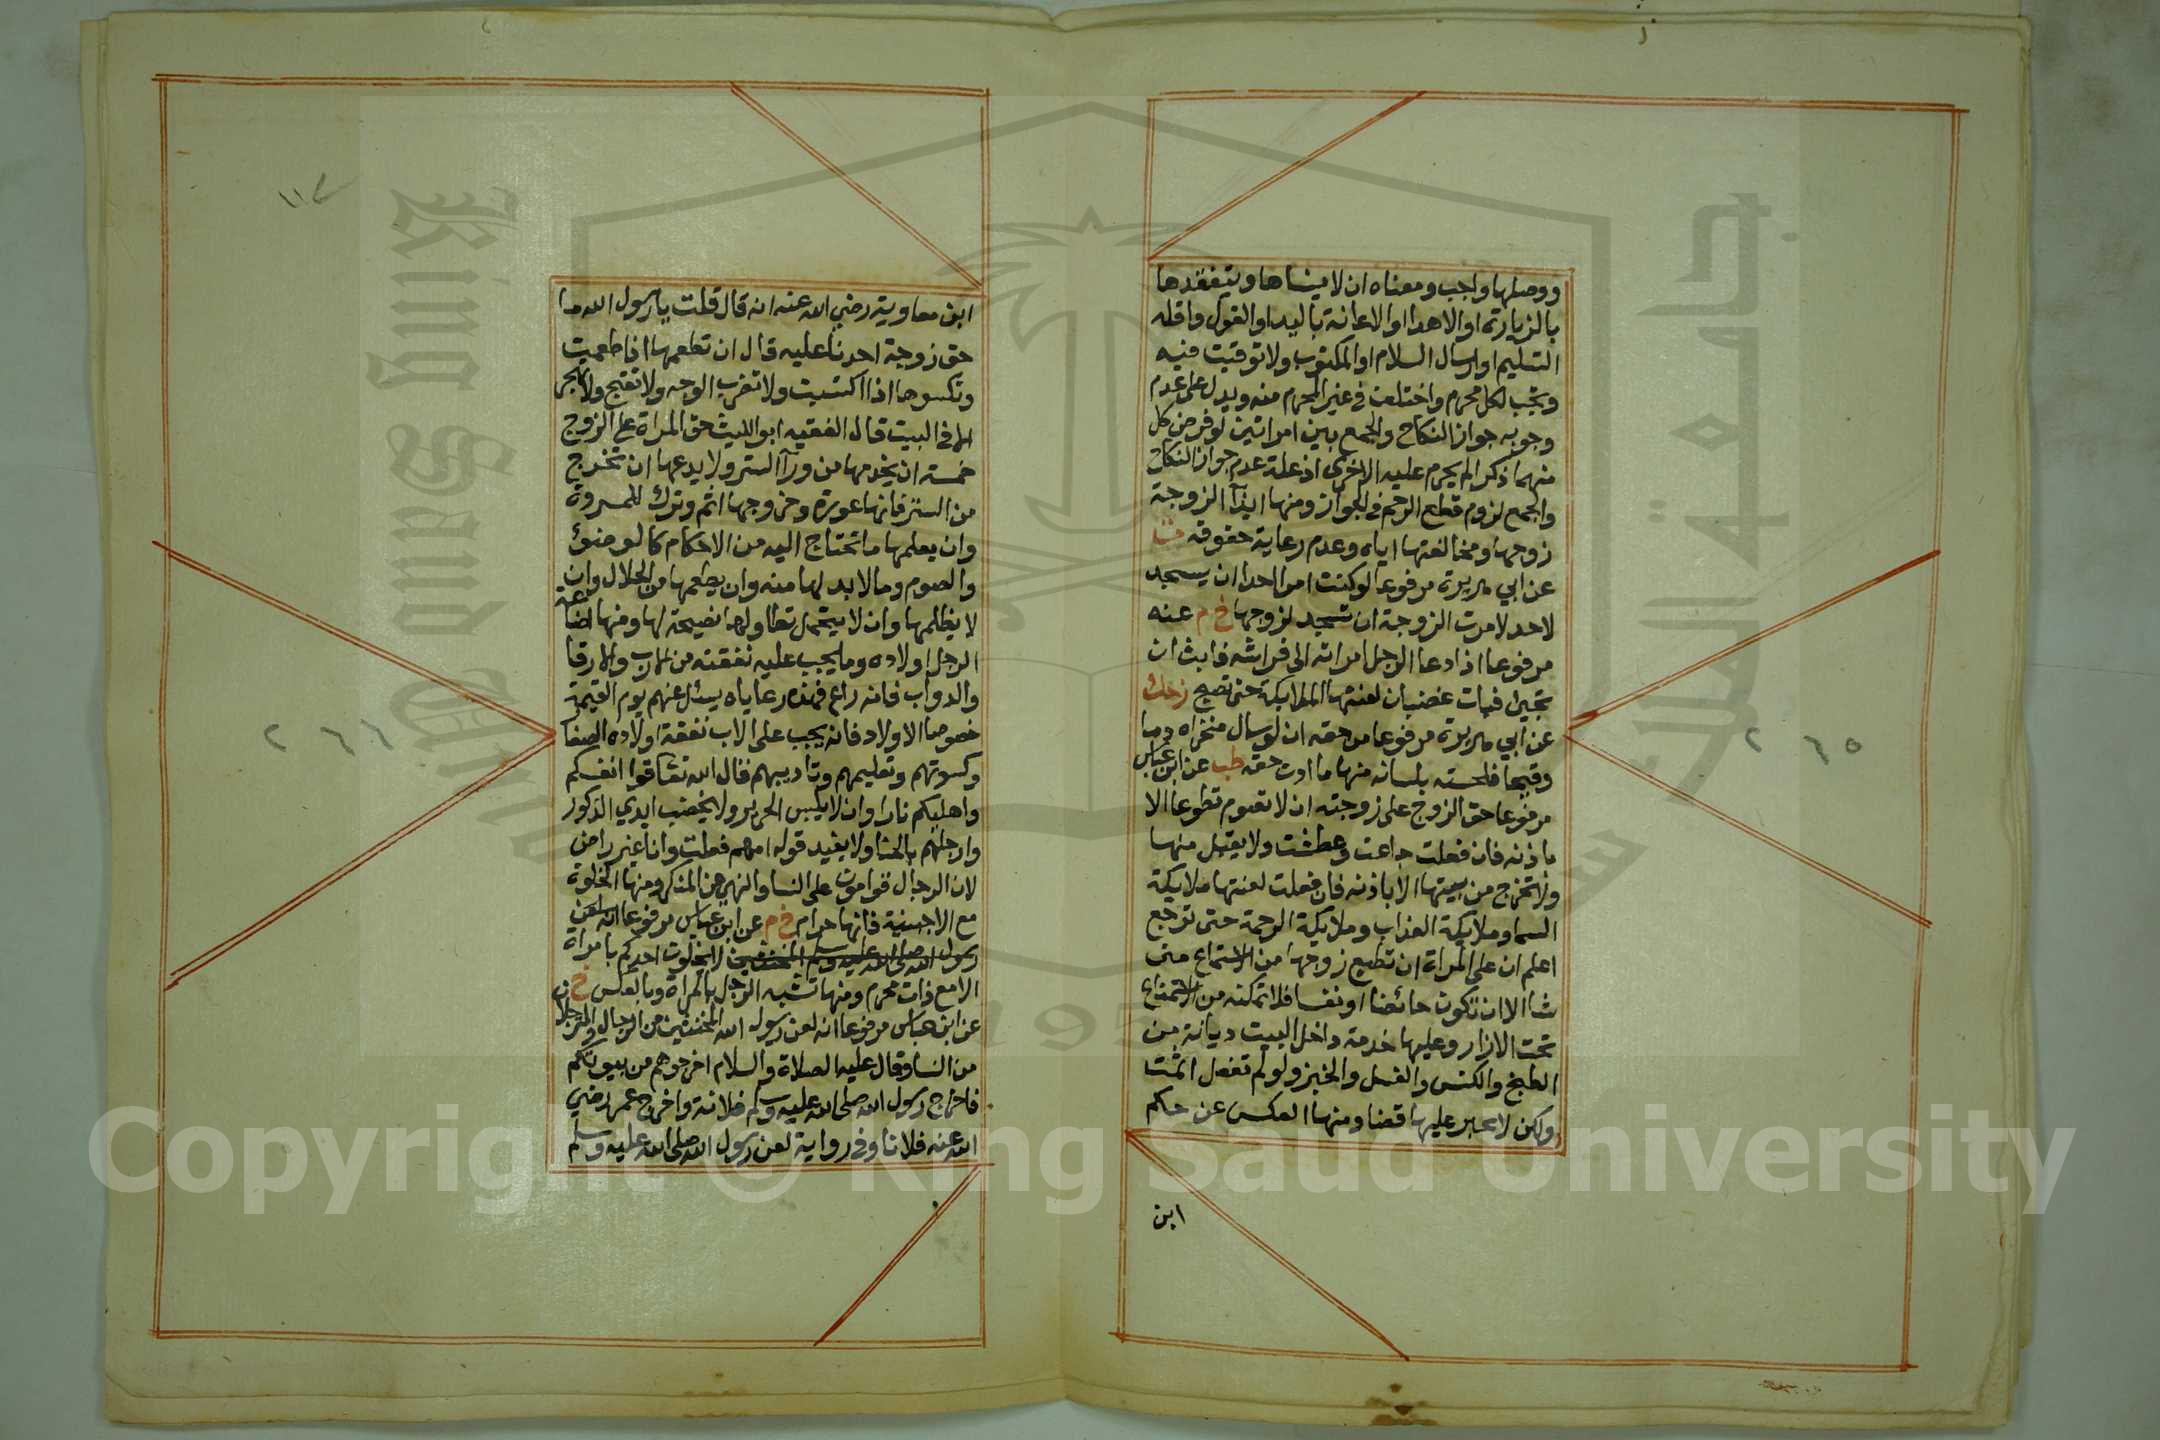 ووصلها واجب ومعناه ان لا ينساها ويتفقدها
بالزيارة او الاهدا او الاعانة باليد او القول واقله
التسليم او ارسال السلام او المكتوب ولا توقيت فيه
ويجب لكل محرم واختلف في غير المحرم منه ويدل على عدم
وجوبه جواز النكاح والجمع بين امراتين لو فرض كل
منهما ذكرا لم يحرم عليه الاخرى اذ علة عدم جواز النكاح
والجمع لزوم قطع الرحم في الجواز ومنها ايذآ الزوجة
زوجها ومخالفتها اياه وعدم رعاية حقوقه
عن ابي هريرة مرفوعا لو كنت امرا احدا ان يسجد
لاحد لامرت الزوجة ان تسجد لزوجها خ م عنه
مرفوعا اذا دعا الرجل امراته الى فراشه فابت ان
تجيئ فبات غضبان لعنتها الملايكة حتى تصبح
عن ابي هريرة مرفوعا من حقه ان لو سال منخراه دما
وقيحا فلحسته بلسانه منها ما ادت حقه طب عن ابن عباس
مرفوعا حق الزوج على زوجته ان لا تصوم تطوعا الا
باذنه فان فعلت جاعت وعطشت ولا يقبل منها
ولا تخرج من بيتها الا باذنه فان فعلت لعنتها ملايكة
السما وملايكة العذاب وملايكة الرحمة حتى ترجع
اعلم ان على المراة ان تطيع زوجها من الاستماع متى
شا الا ان تكون حائضا او نفسا فلا تمكنه من الاستمتاع
تحت الازار وعليها خدمة داخل البيت ديانة من
الطبخ والكنس والغسل والخبز ولو لم تفعل اثمت
ولكن لا يجبر عليها قضا ومنها العكس عن حكم
ابن
٢٦٥
١١٧
ابن معاوية رضي الله عنه انه قال قلت يا رسول الله ما
حق زوجة احدنا عليه قال ان تطعمها اذا طعمت
وتكسوها اذا اكتسيت ولا تضرب الوجه ولا تقبح ولا تهجر
الا في البيت قال الفقيه ابو الليث حق المراة على الزوج
خمسة ان يخدمها من ورآ الستر ولا يدعها ان تخرج
من الستر فانها عورة وخروجها اثم وترك للمروة
وان يعلمها ما تحتاج اليه من الاحكام كالوضوئ
والصوم وما لا بد لها منه وان يطعمها من الحلال وان
لا يظلمها وان لا يتحمل تطاولها نصيحة لها ومنها اضاعة
الرجل اولاده وما يجب عليه نفقته من الاقارب والارقا
والدواب فانه راع رعاياه يسئل عنهم يوم القيمة
خصوصا الاولاد فانه يجب على الاب نفقة اولاده الصغا
وكسوتهم وتعليمهم وتاديبهم فقال الله تعا قوا انفسكم
واهليكم نارا وان لا يلبس الحرير ولا يخضب ايدي الذكور
وارجلهم بالحنا ولا يفيد قوله امهم فعلت وانا غير راض
لان الرجال قوامون على النسا والنهي عن المنكر ومنها الخلوة
مع الاجنبية فانها حرام خ م عن ابن عباس مرفوعا
رسول الله صلى الله عليه وسلم لا يخلون احدكم بامراة
الا مع ذات محرم ومنها تشبه الرجل بالمراة وبالعكس خ
عن ابن عباس مرفوعا انه لعن رسول الله المخنثين من الرجال والمترجلات
من النسا وقال عليه الصلاة والسلام اخرجوهم من بيوتكم
فاخرج رسول الله صلى الله عليه وسلم فلانة واخرج عمر رضي
الله عنه فلانا وفي رواية لعن رسول الله صلى الله عليه وسلم
٢٦٦
King Saud University
جامعة الملك سعود
Copyright © King Saud University